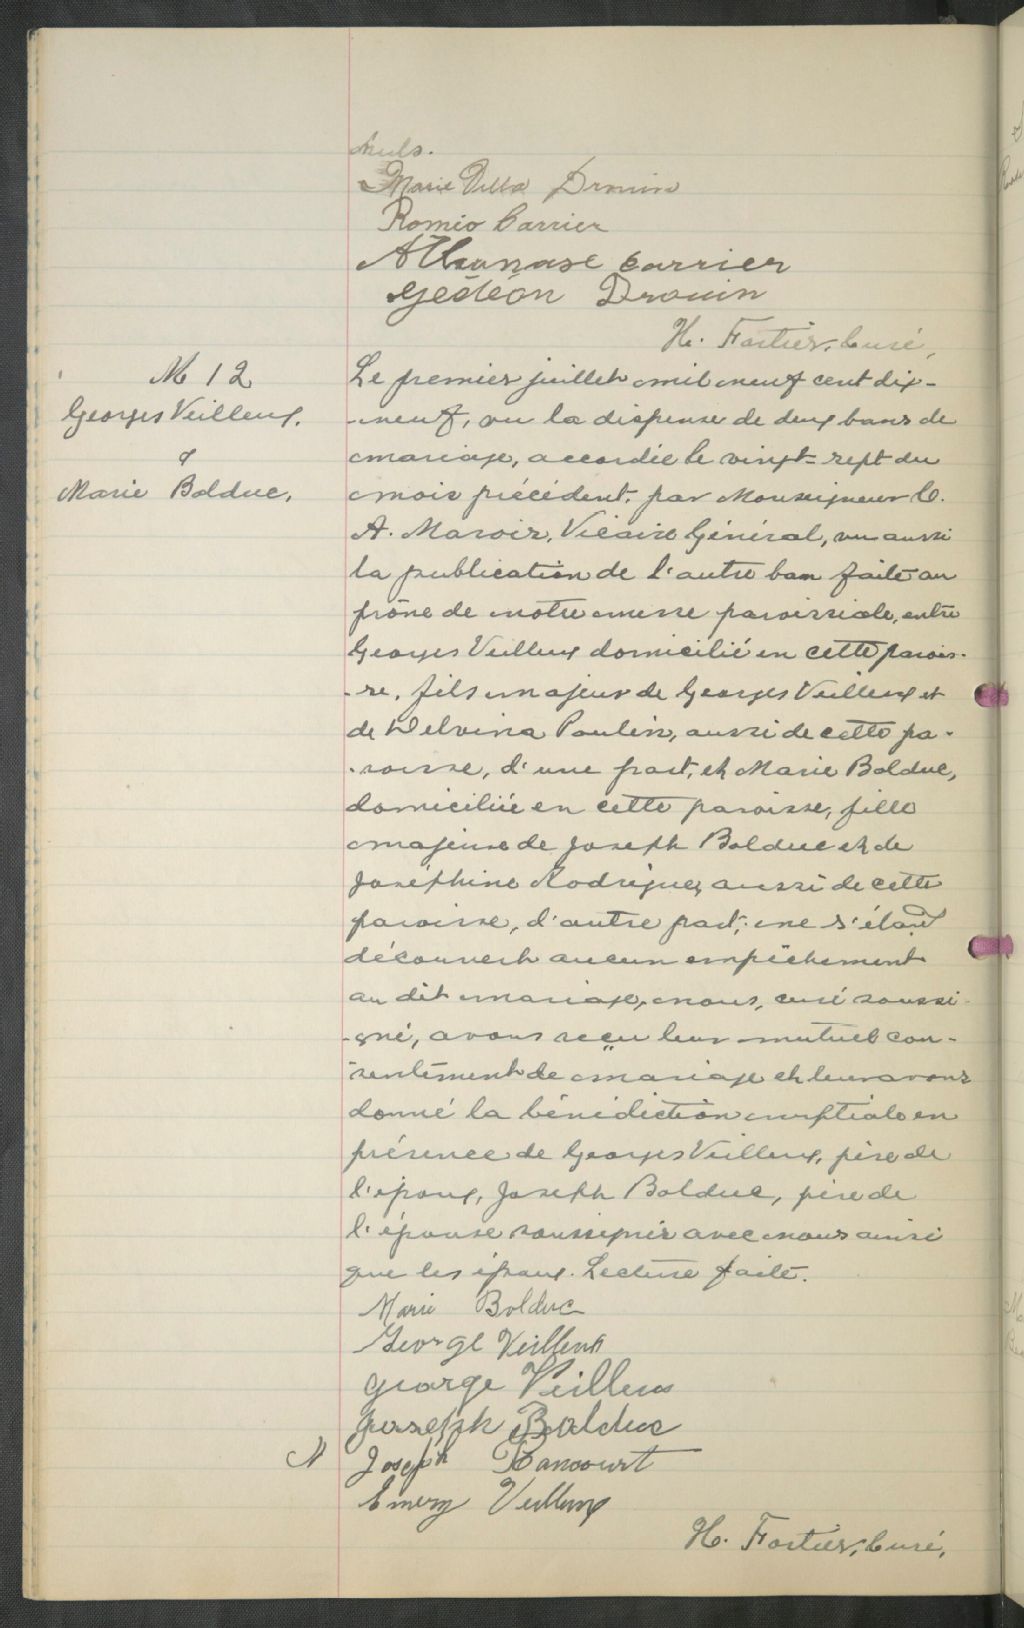 nuls.
Marie Villa Drouin
Roméo Carrier
Athanase Carrier
Gédéon Drouin
H. Fortier, Curé,
M 12
Georges Veilleux,
&
Marie Bolduc,
Le premier juillet mil neuf cent dix-
-neuf, vu la dispense de deux bans de
mariage, accordée le vingt-sept du
mois précédent, par Monseigneur C.
A. Marois, Vicaire Général, vu aussi
la publication de l'autre ban faite au
prône de notre messe paroissiale, entre
Georges Veilleux domicilié en cette parois-
-se, fils majeur de Georges Veilleux et
de Delvina Poulin, aussi de cette pa-
-roisse, d'une part, et Marie Bolduc,
domiciliée en cette paroisse, fille
majeure de Joseph Bolduc et de
Joséphine Rodrigue, aussi de cette
paroisse, d'autre part; ne s'étant
découvert aucun empêchement
au dit mariage, nous, curé soussi-
-gné, avons reçu leur mutuel con-
-sentement de mariage et leur avons
donné la bénédiction nuptiale en
présence de Georges Veilleux, père de
l'époux, Joseph Bolduc, père de
l'épouse soussignés avec nous ainsi
que les époux. Lecture faite.
Marie Bolduc
George Veilleux
George Veilleux
Joseph Bolduc
N Joseph Rancourt
Emery Veilleux
H. Fortier, Curé,